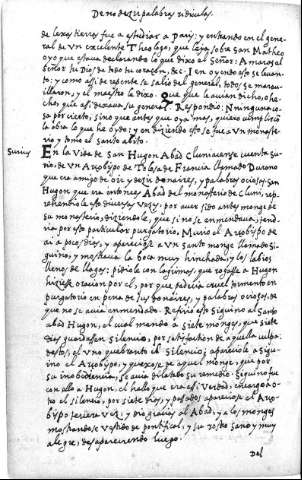 De no dezir palabras ridiculas.
de leyes Reyes fue a estudiar a Paris; y entrando en el gene
ral de un excelente Theologo, que leya sobre San Matheo
oyo que estava declarando lo que dixo el Señor: Amaras al
Señor tu Dios de todo tu coraçon, &c. I en oyendo esto se levan
to; y como assi de repente se salio del general, todos se marau
illaron, y el maestro le dixo: Que que le avian dicho, o he
cho; que assi dexava su general? Respondio: Ninguna co
sa por cierto; sino que antes que oya mas, quiero cumplir
la obra lo que he oydo; y en diziendo esto se fue a un moneste
rio y tomo el santo abito.
Surius
En la Vida de San Hugon Abad Cluniacense cuenta Su
rio, de un Arçobispo de Tolosa de Francia llamado Durano
que era amigo de oir y dezir donaires, y palabras ociosas. San
Hugon que era entonces Abad del monasterio de Cluni, le
reprehendio de esto diversas vezes: por aver sido antes monge de
su monasterio, diziendole, que si no se enmendava, tend
ria por esto particular purgatorio. Murio el Arçobispo de
ai a pocos dias, y apareciose a un santo monge llamado Si
guino; y mostrava la boca muy hinchada, y los labios
llenos de llagas: pidiole con lagrimas, que rogasse a Hugon
hiziesse oracion por el, por que padecia cruel tormento en
purgatorio en pena de sus donaires, y palabras ociosas, de
que no se avia enmendado. Refirio esto Siguino al Santo
abad Hugon, el cual mando a siete monges, que siete
dias guardassen silencio, por satisfaction de aquella culpa:
destos, el uno quebranto el silencio; apareciole a Sigui
no el Arçobispo, y quexose de aquel monge, que por
su inobediencia, se avia dilatado su remedio. Siguino fue
con ello a Hugon, el hallo que era assi verdad, encargo a o
tro el silencio, por siete dias, y passados aparecio se el Arço
bispo tercera vez, y dio gracias al Abad, y a los monges
mostrandose vestido de pontifical, y su rostro sano y muy
alegre, desapareciendo luego.
Del